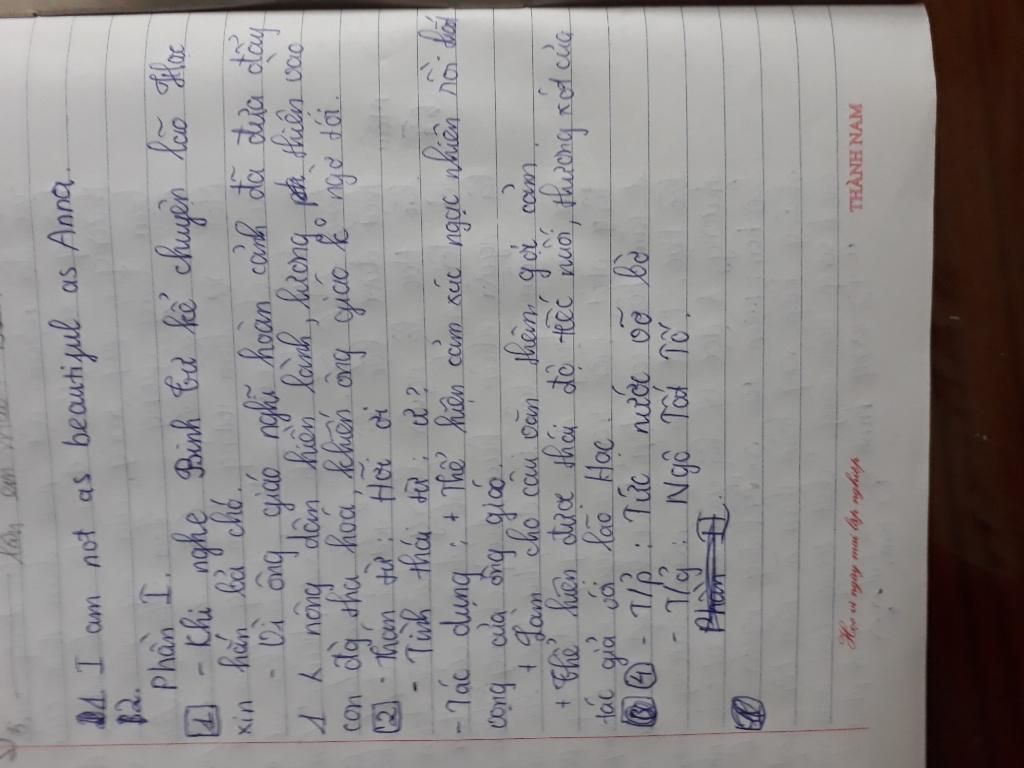 B1. I am not as beautiful as Anna.
B2.
Phần I.
1 - Khi nghe Binh Tư kể chuyện lão Hạc
xin hắn bả chó.
- Vì ông giáo nghĩ hoàn cảnh đã đưa đẩy
1 nông dân hiền lành, lương thiên vào
con đg tha hoá, khiến ông giáo ko ngờ tới.
2 - Thán từ: Hỡi ơi
- Tình thái từ: ư?
- Tác dụng: + Thể hiện cảm xúc ngạc nhiên rồi thất
vọng của ông giáo.
+ Làm cho câu văn thêm gợi cảm.
+ Thể hiện được thái độ tiếc nuối, thương xót của
tác giả với lão Hạc.
4 - T/p: Tức nước vỡ bờ
- T/g: Ngô Tất Tố.
Phần II
Học vì ngày mai lập nghiệp THÀNH NAM